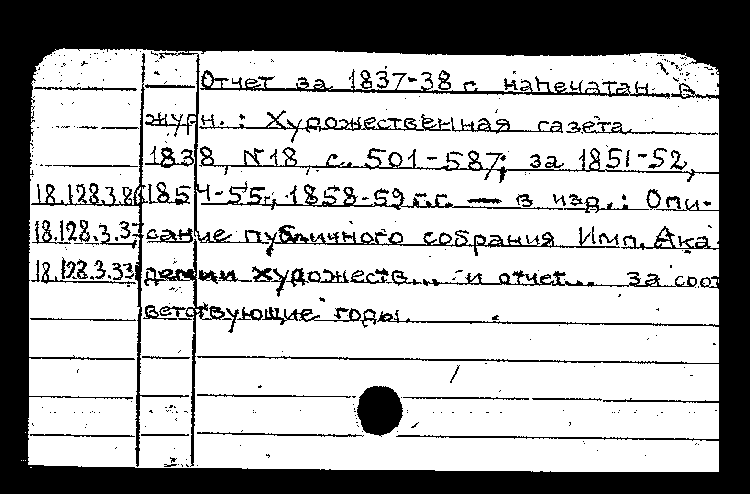 Отчет за 1837-38 г напечатан в
журн.: Художественная газета
1838, №18, с. 501-587; за 1851-52,
18.128.3.86 1854-55, 1858-59 г.г. — в изд.: Опи-
18.128.3.37 сание публичного собрания Имп. Ака-
18.128.3.33 демии художеств... и отчет... за соот
ветствующие годы.